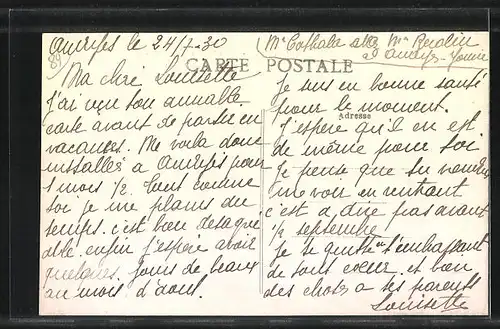 Andryes le 24/7-30
Mr Cathala chez Mme Rodin
à Andryes - Yonne
89
CARTE POSTALE
Adresse
Ma chère Louisette
J'ai reçu ton aimable
carte avant de partir en
vacances. Me voila donc
installés a Andryes pour
1 mois 1/2. Tout comme
toi je me plains du
temps. c'est bien désagré
able. enfin j'espère avoir
quelques jours de beaux
au mois d'aout.
Je suis en bonne santé
pour le moment.
J'espère qu'il en est
de même pour toi.
Je pense que tu viendras
me voir en rentrant
c'est a dire pas avant
1/2 septembre
Je te quitte en t'embrassant
de tout coeur. et bien
des choses a tes parents
Louisette